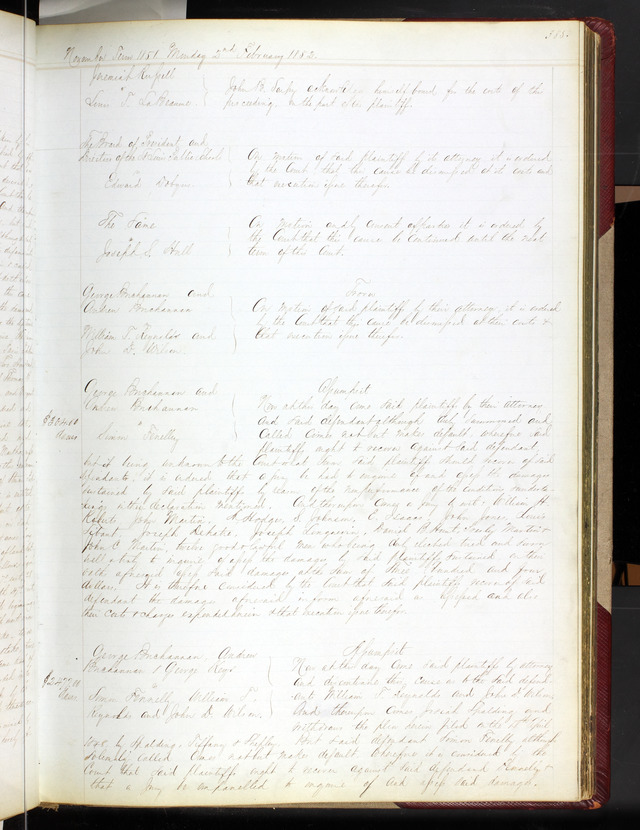 353.
November Term 1851 Monday 2nd February 1852.
Jeremiah
vs
Louis T. LaBeaume
John B. himself bound for the costs of this
proceeding on the part of the plaintiff.
The Board of President and
Directors of the Public Schools
vs
Edward Dobyns
On motion of said plaintiff by its attorney it is ordered
by the Court that this cause be dismissed at its costs and
that execution issue therefor
The Same
vs
Joseph S. Hull
On motion and by consent of parties it is ordered by
the Court that this cause be continued until the next
term of this Court.
George Buchannan and
Andrew Buchannan
vs
William T. Reynolds and
John D. Wilson
On motion of said plaintiff by their attorney it is ordered
by the Court that this cause be dismissed at their costs &
that execution issue therefor.
George Buchannan and
Andrew Buchannan
vs
Simon Finelly
$304.00
Assumpsit
Now at this day come said plaintiff by their attorney
and said defendant although duly summoned and
called comes not but makes default wherefore said
plaintiff ought to recover against said defendant
but it being unknown to the Court what sum said plaintiff should recover of said
defendant, it is ordered that a jury be had to enquire of and assess the damages
sustained by said plaintiff by reason of the nonperformance of the
in the declaration mentioned. And thereupon comes a jury to wit: William H.
John Martin, A. Hodgen, S. Johnson, E. Isaacs, John Jones, Louis
Joseph Joseph Daniel B. Hunt, Martin &
John C. Martin, twelve good & lawful men who being duly elected tried and sworn
well & truly to enquire & assess the damages by said plaintiff sustained on their
oath aforesaid assess said damages at the sum of Three Hundred and four
dollars. It is therefore considered by the Court that said plaintiff recover of said
defendant the damages aforesaid in form aforesaid as assessed and also
their costs & charges expended herein & that execution issue therefor
George Buchannan, Andrew
Buchannan & George Keys
vs
Simon Finnelly William T.
Reynolds and John D. Wilson.
Assumpsit
Now at this day come said plaintiff by attorney
and discontinue this cause as to the said defend-
ants William T. Reynolds and John D. Wilson,
And thereupon comes Josiah Spalding and
withdraws the plea herein filed on the
by Spalding, Tiffany & And said defendant Simon Finelly altho
solemnly called comes not but makes default Wherefore it is considered by the
Court that said plaintiffs ought to recover against said defendant Finnelly &
that a jury be impannelled to enquire of and assess said damages.